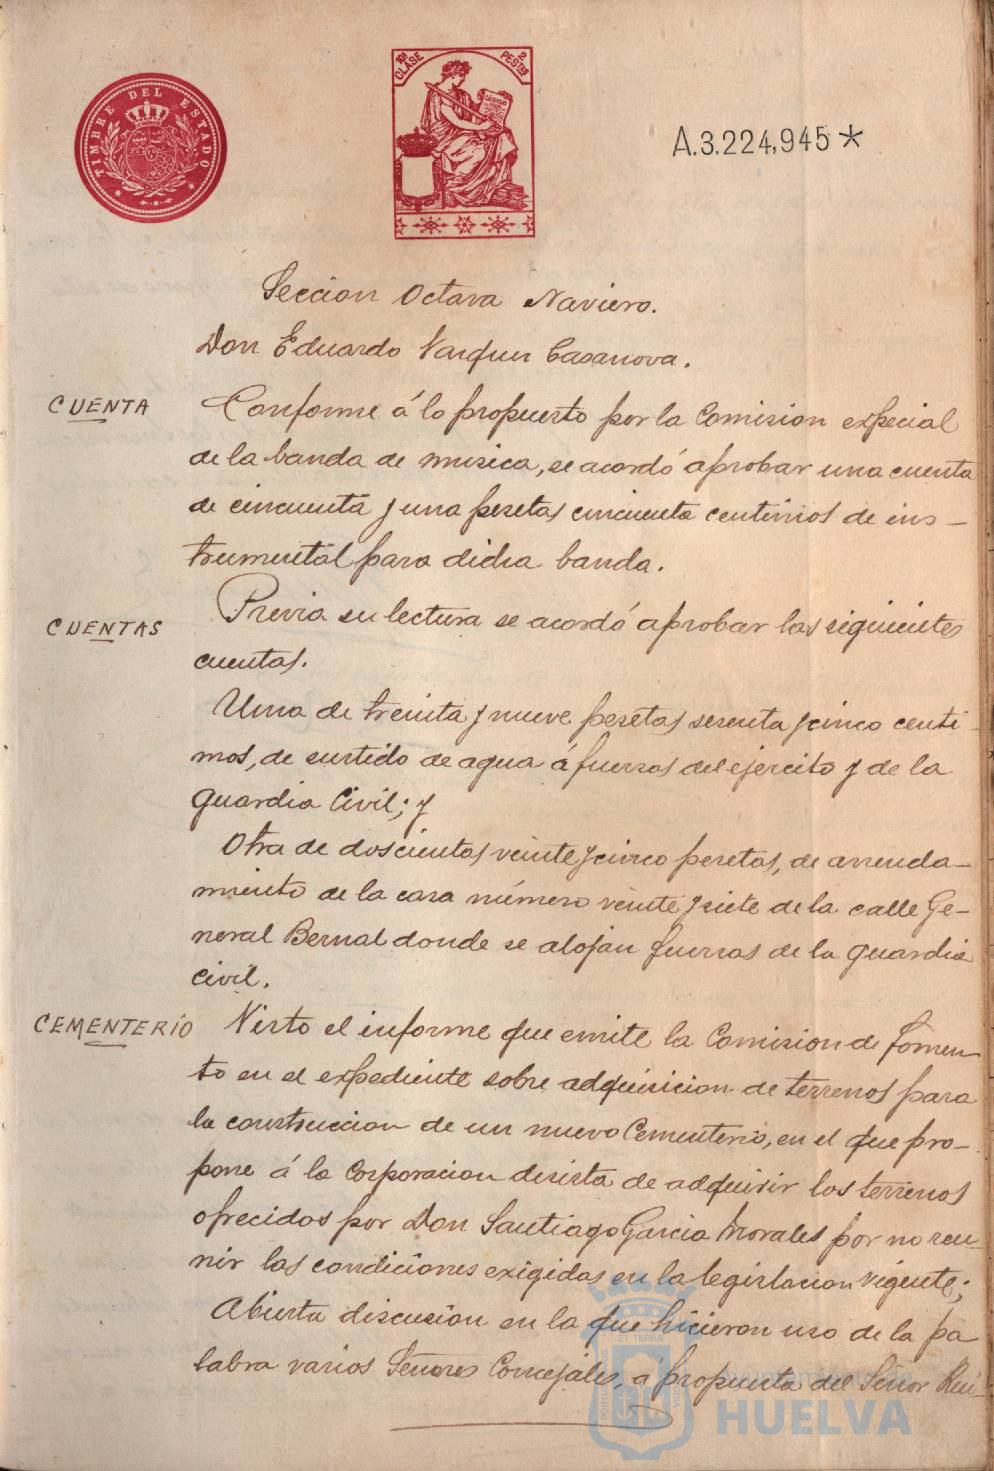 TIMBRE DEL ESTADO
10ª CLASE
2 PESTAS
A.3.224,945*
Seccion Octava Naviero.
Don Eduardo Vazquez Casanova.
CUENTA
Conforme á lo propuesto por la Comision especial
de la banda de musica, se acordó aprobar una cuenta
de cincuenta y una pesetas cincuenta centimos de ins-
trumental para dicha banda.
CUENTAS
Previa su lectura se acordó aprobar las siguientes
cuentas.
Una de treinta y nueve pesetas sesenta y cinco centi-
mos, de surtido de agua á fuerzas del ejercito y de la
guardia Civil; y
Otra de doscientas veinte y cinco pesetas, de arrenda-
miento de la casa número veinte y siete de la calle Ge-
neral Bernal donde se alojan fuerzas de la guardia
civil.
CEMENTERIO
Visto el informe que emite la Comision de fomen-
to en el expediente sobre adquisicion de terrenos para
la construccion de un nuevo Cementerio, en el que pro-
pone á la Corporacion desista de adquirir los terrenos
ofrecidos por Don Santiago Garcia Morales por no reu-
nir las condiciones exigidas en la legislacion vigente;
Abierta discusion en la que hicieron uso de la pa
labra varios Señores Concejales, á propuesta del Señor
Ayuntamiento de
HUELVA